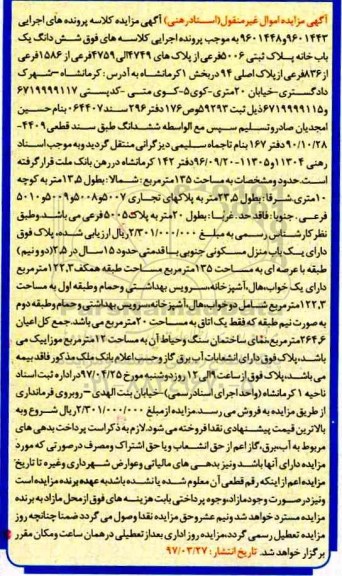 آگهی مزایده اموال غیرمنقول(اسنادرهنی) آگهی مزایده کلاسه پرونده های اجرایی
۹۶۰۱۴۴۳و۹۶۰۱۴۴۸ به موجب پرونده اجرایی کلاسه های فوق شش دانگ یک
باب خانه پلاک ثبتی ۵۰۰۶فرعی از پلاک های ۴۷۴۹الی۴۷۵۹فرعی از ۱۵۸۶فرعی
از۸۳۶فرعی از پلاک اصلی ۹۴ دربخش ۱کرمانشاه به آدرس: کرمانشاه –شهرک
دادگستری-خیابان ۲۰متری-کوی۵-کوی متی -کدپستی ۶۷۱۹۹۹۹۱۱۷
و۶۷۱۹۹۹۹۱۱۵ذیل ثبت ۵۹۲۹۳ص۱۷۶ دفتر ۲۹۶ سند۰۶۴۴۰۷ بنام حسین
امجدیان صادروتسلیم سپس مع الواسطه ششدانگ طبق سند قطعی ۴۴۰۹-
۹۰/۱۰/۲۸ دفتر ۱۶۷ بنام تاجماه سلیمی دیزگرانی منتقل گردیدوبه موجب اسناد
رهنی ۱۱۳۰۴و۱۱۳۰۵-۹۶/۰۹/۲۰دفتر ۱۴۲ کرمانشاه دررهن بانک ملت قرار گرفته
است.حدودومشخصات به مساحت ۱۳۵مترمربع: شمالا: بطول ۱۳٫۵متر به کوچه
۱۰متری.شرقا: بطول ۲۳٫۵متر به پلاکهای تجاری ۵۰۰۷و۵۰۰۸و۵۰۰۹و۵۰۱۰
فرعی. جنوبا: فاقد حد. غربا: بطول ۲۰متر به پلاک ۵۰۰۵فرعی می باشد.وطبق
نظر کارشناس رسمی به مبلغ ۲/۳۰۱/۰۰۰/۰۰۰ریال ارزیابی شده، پلاک فوق
دارای یک باب منزل مسکونی جنوبی باقدمتی حدود ۱۵سال در۲٫۵(دوونیم)
طبقه با عرصه ای به مساحت ۱۳۵مترمربع مساحت طبقه همکف۱۲۲٫۳مترمربع
دارای یک خواب،هال،آشپزخانه،سرویس بهداشتی وحمام وطبقه اول به مساحت
۱۲۲٫۳مترمربع شامل دو خواب،هال،آشپزخانه،سرویس بهداشتی وحمام وطبقه دوم
به صورت نیم طبقه که فقط یک اتاق به مساحت ۲۰مترمربع می باشد.جمع کل اعیان
۲۶۴٫۶مترمربع.نمای ساختمان سنگ وحیاط آن به مساحت ۱۲مترمربع موزاییک می
باشد. پلاک فوق دارای انشعابات آب برق گاز وحسب اعلام بانک ملک مذکور فاقد بیمه
می باشد. پلاک فوق از ساعت ۹الی۱۲ روزدوشنبه مورخ ۹۷/۰۴/۲۵دراداره ثبت اسناد
ناحیه ۱کرمانشاه (واحد اجرای اسناد رسمی)–خیابان بنت الهدی –روبروی فرمانداری
از طریق مزایده به فروش می رسد.مزایده ازمبلغ ۲/۳۰۱/۰۰۰/۰۰۰ ریال شروع وبه
بالاترین قیمت پیشنهادی نقدا فروخته می شود.لازم به ذکراست پرداخت بدهی های
مربوط به آب،برق،گازاعم از حق انشعاب ویا حق اشتراک ومصرف درصورتی که مورد
مزایده دارای آنها باشدونیز بدهی های مالیاتی وعوارض شهرداری وغیره تا تاریخ
مزایده اعم ازاینکه رقم قطعی آن معلوم شده یانشده باشدبه عهده برنده مزایده است
ونیزدرصورت وجودمازاد،وجوه پرداختی بابت هزینه های فوق ازمحل مازادبه برنده
مزایده مسترد خواهدشد ونیم عشروحق مزایده نقدا وصول می گردد ضمنا چنانچه روز
مزایده تعطیل رسمی گردد،مزایده روزاداری بعدازتعطیلی درهمان ساعت ومکان مقرر
برگزار خواهد شد. تاریخ انتشار: ۹۷/۰۳/۲۷